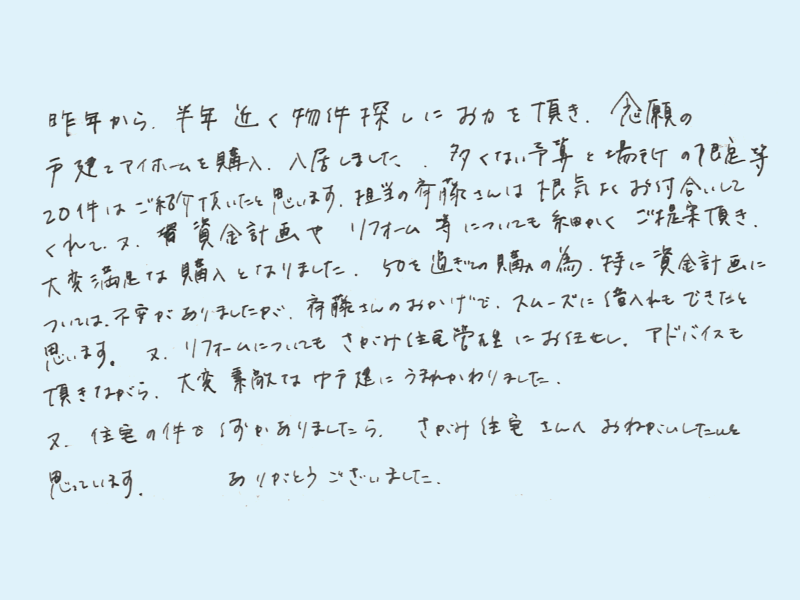 昨年から、半年近く物件探しにお力を頂き、念願の
戸建てマイホームを購入、入居しました、、多くない予算と場所の限定等
20件はご紹介頂いたと思います。担当の斉藤さんは根気よくお付合いして
くれて、又、資金計画やリフォーム等についても細かくご提案頂き、
大変満足な購入となりました。50を過ぎての購入の為、特に資金計画に
ついては、不安がありましたが、斉藤さんのおかげで、スムーズに借入れもできたと
思います。又、リフォームについてもさがみ住宅管理にお任せし、アドバイスも
頂きながら、大変素敵な中戸建にうまれかわりました。
又、住宅の件で何かありましたら、さがみ住宅さんへおねがいしたいと
思っています。ありがとうございました。